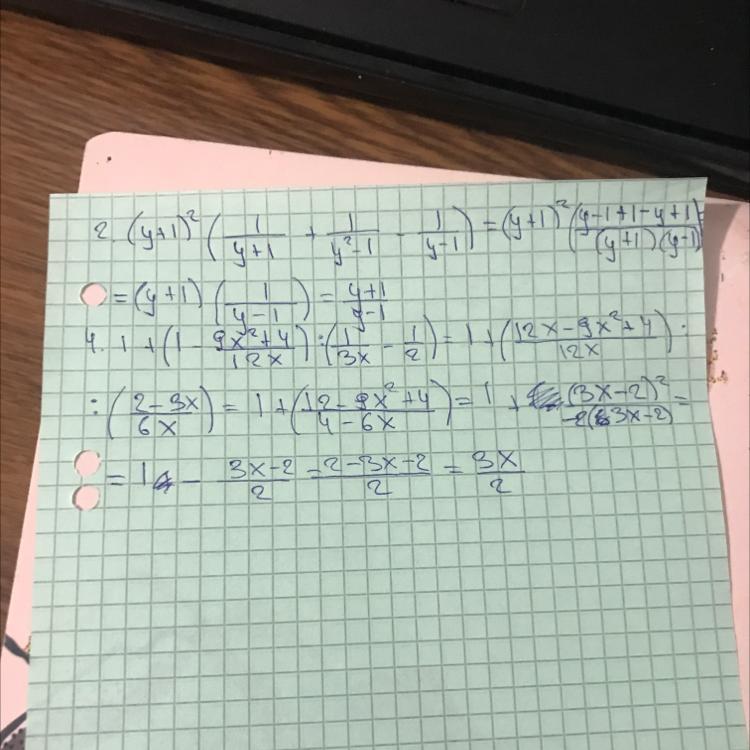 2. (y+1)² (1/(y+1) + 1/(y²-1) - 1/(y-1)) = (y+1)² ((y-1+1-y+1)/((y+1)(y-1))) =
= (y+1) (1/(y-1)) = (y+1)/(y-1)
4. 1 + (1 - (9x²+4)/(12x)) : (1/(3x) - 1/2) = 1 + ((12x-9x²+4)/(12x)) :
: ((2-3x)/(6x)) = 1 + ((12-9x²+4)/(4-6x)) = 1 + (3x-2)²/(-2(3x-2)) =
= 1 - (3x-2)/2 = (2-3x-2)/2 = 3x/2